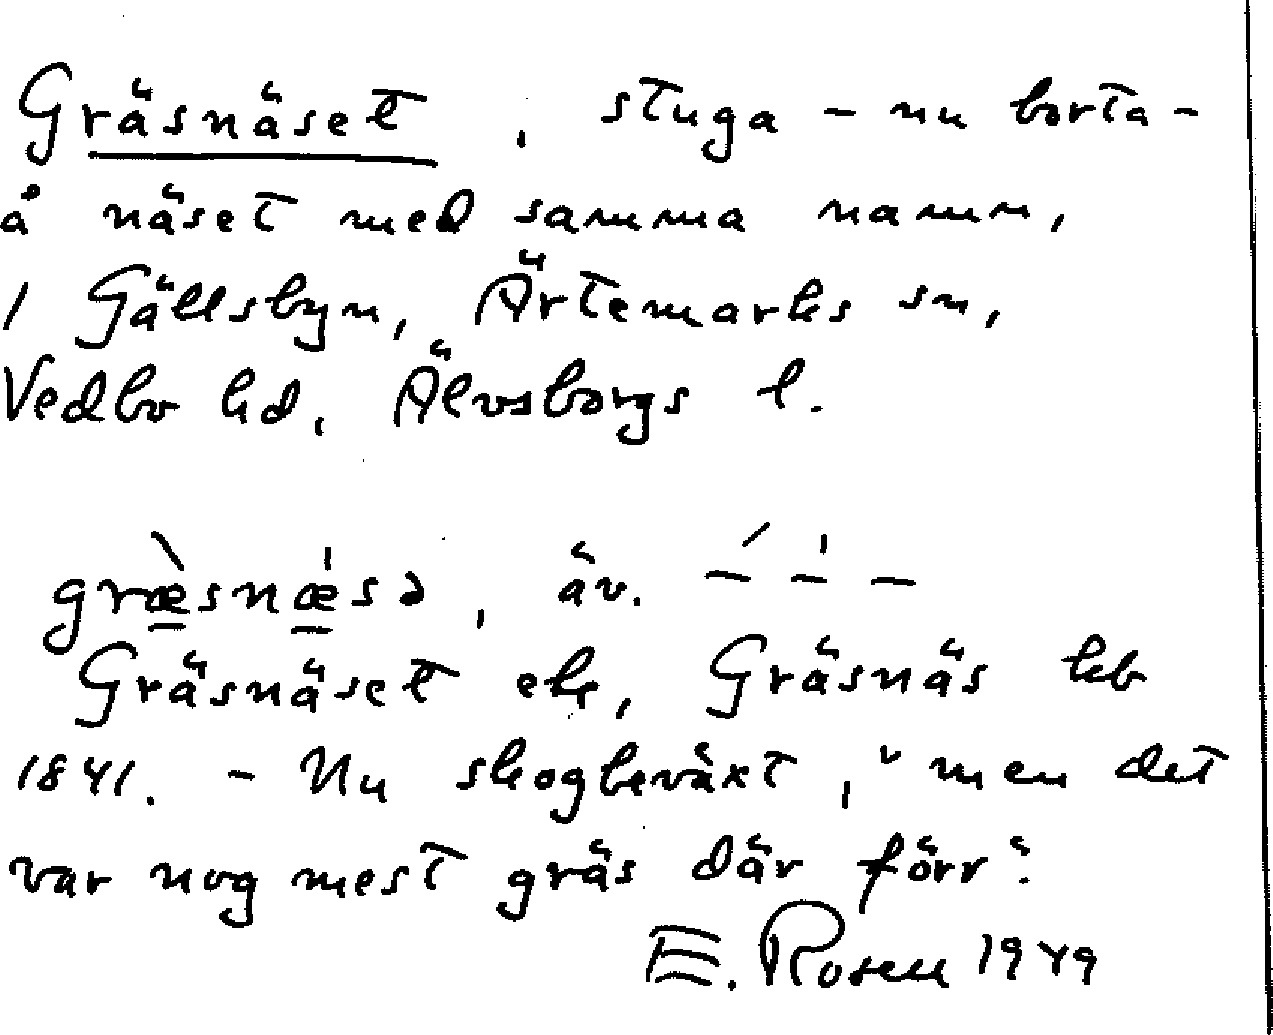 Gräsnäset, stuga – nu borta –
å näset med samma namn,
i Gällsbyn, Ärtemarks sn,
Vedbo hd, Älvsborgs l.
græ̀snæ̍sə, äv. – – –
Gräsnäset el., Gräsnäs kb
1841. – Nu skogbeväxt, "men det
var nog mest gräs där förr".
E. Rosell 1949